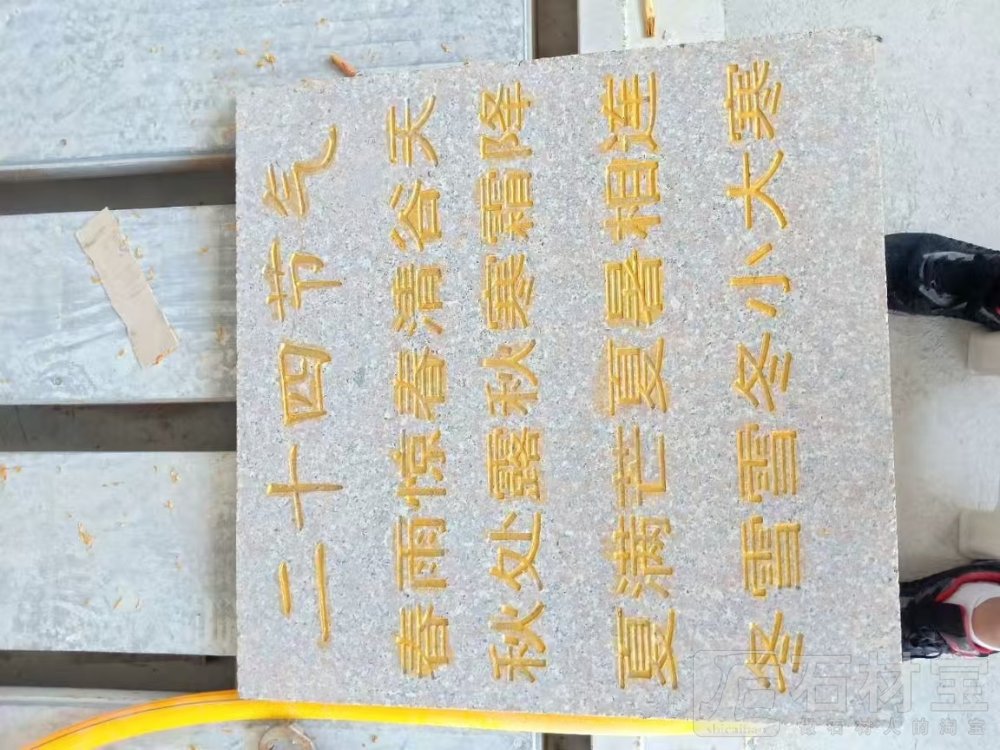 二十四节气
春雨惊春清谷天
秋处露秋寒霜降
夏满芒夏暑相连
冬雪雪冬小大寒
石材宝
shicaibao
石材人的淘宝